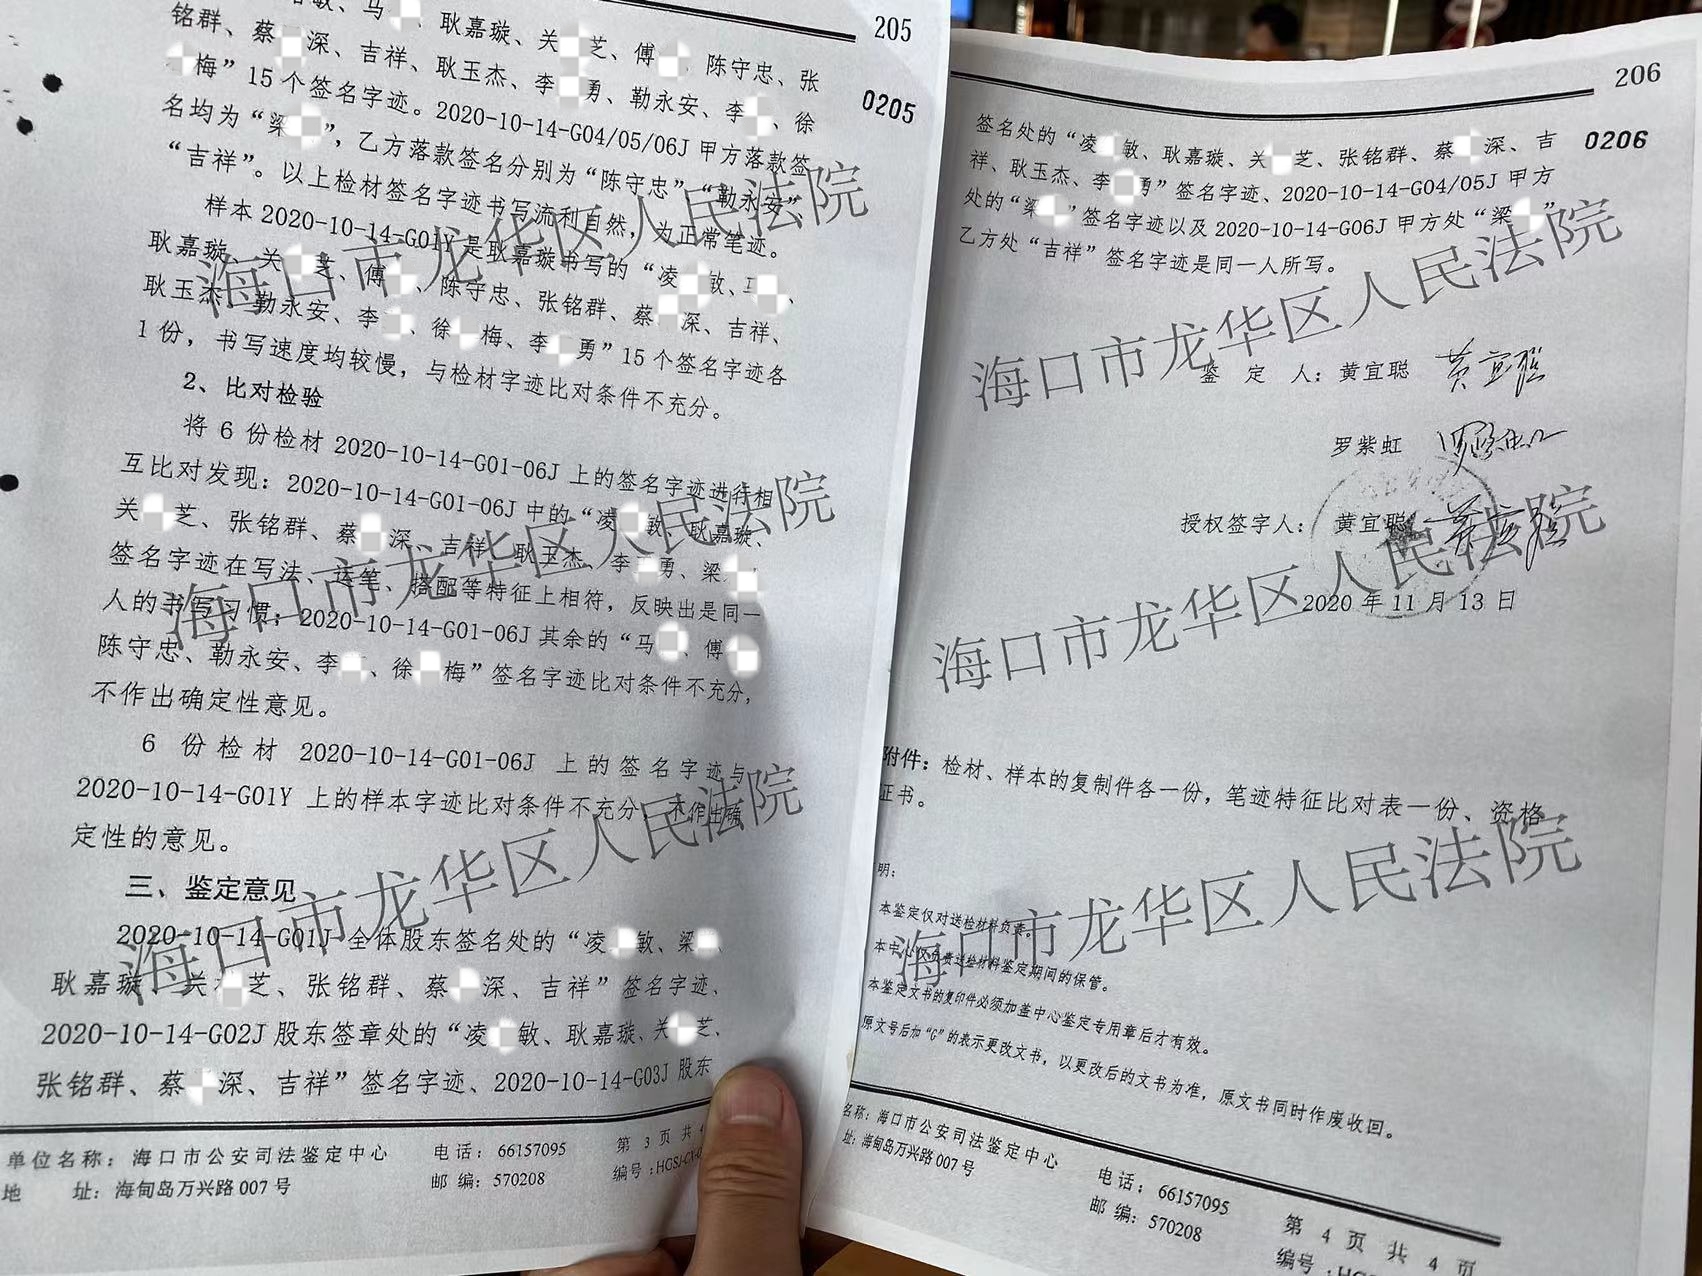 205
0205
敏、马、耿嘉璇、关芝、傅、陈守忠、张
铭群、蔡深、吉祥、耿玉杰、李勇、勒永安、李、徐
梅”15个签名字迹。2020-10-14-G04/05/06J 甲方落款签
名均为“梁”，乙方落款签名分别为“陈守忠”“勒永安”
“吉祥”。以上检材签名字迹书写流利自然，为正常笔迹。
样本 2020-10-14-G01Y 是耿嘉璇书写的“凌敏、
耿嘉璇、关芝、傅、陈守忠、张铭群、蔡深、吉祥、
耿玉杰、勒永安、李、徐梅、李勇”15个签名字迹各
1份，书写速度均较慢，与检材字迹比对条件不充分。
2、比对检验
将 6 份检材 2020-10-14-G01-06J 上的签名字迹进行相
互比对发现：2020-10-14-G01-06J 中的“凌敏、耿嘉璇、
关芝、张铭群、蔡深、吉祥、耿玉杰、李勇、梁
签名字迹在写法、运笔、搭配等特征上相符，反映出是同一
人的书写习惯；2020-10-14-G01-06J 其余的“马、傅
陈守忠、勒永安、李、徐梅”签名字迹比对条件不充分，
不作出确定性意见。
6 份检材 2020-10-14-G01-06J 上的签名字迹与
2020-10-14-G01Y 上的样本字迹比对条件不充分，不作出确
定性的意见。
三、鉴定意见
2020-10-14-G01J 全体股东签名处的“凌敏、梁、
耿嘉璇、关芝、张铭群、蔡深、吉祥”签名字迹、
2020-10-14-G02J 股东签章处的“凌敏、耿嘉璇、关芝、
张铭群、蔡深、吉祥”签名字迹、2020-10-14-G03J 股东
单位名称：海口市公安司法鉴定中心 电话：66157095 第 3 页 共
地 址：海甸岛万兴路 007 号 邮编：570208 编号：HGSJ-CX-0
海口市龙华区人民法院
海口市龙华区人民法院
海口市龙华区人民法院
206
0206
签名处的“凌敏、耿嘉璇、关芝、张铭群、蔡深、吉
祥、耿玉杰、李勇”签名字迹、2020-10-14-G04/05J 甲方
处的“梁”签名字迹以及 2020-10-14-G06J 甲方处“梁”
乙方处“吉祥”签名字迹是同一人所写。
鉴 定 人：黄宜聪 黄宜聪
罗紫虹 罗紫虹
授权签字人： 黄宜聪 黄宜聪
2020 年 11 月 13 日
附件：检材、样本的复制件各一份，笔迹特征比对表一份、资格
证书。
明：
本鉴定仅对送检材料负责。
本中心仅负责送检材料鉴定期间的保管。
本鉴定文书的复印件必须加盖中心鉴定专用章后才有效。
原文号后加“G”的表示更改文书，以更改后的文书为准，原文书同时作废收回。
名称：海口市公安司法鉴定中心 电话：66157095 第 4 页 共 4 页
址：海甸岛万兴路 007 号 邮编：570208 编号：HG
海口市龙华区人民法院
海口市龙华区人民法院
海口市龙华区人民法院